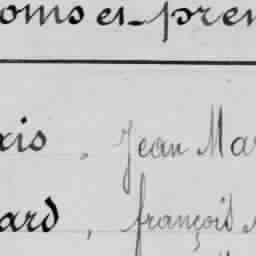 oms et pren
xis, Jean Mar
ard, françois